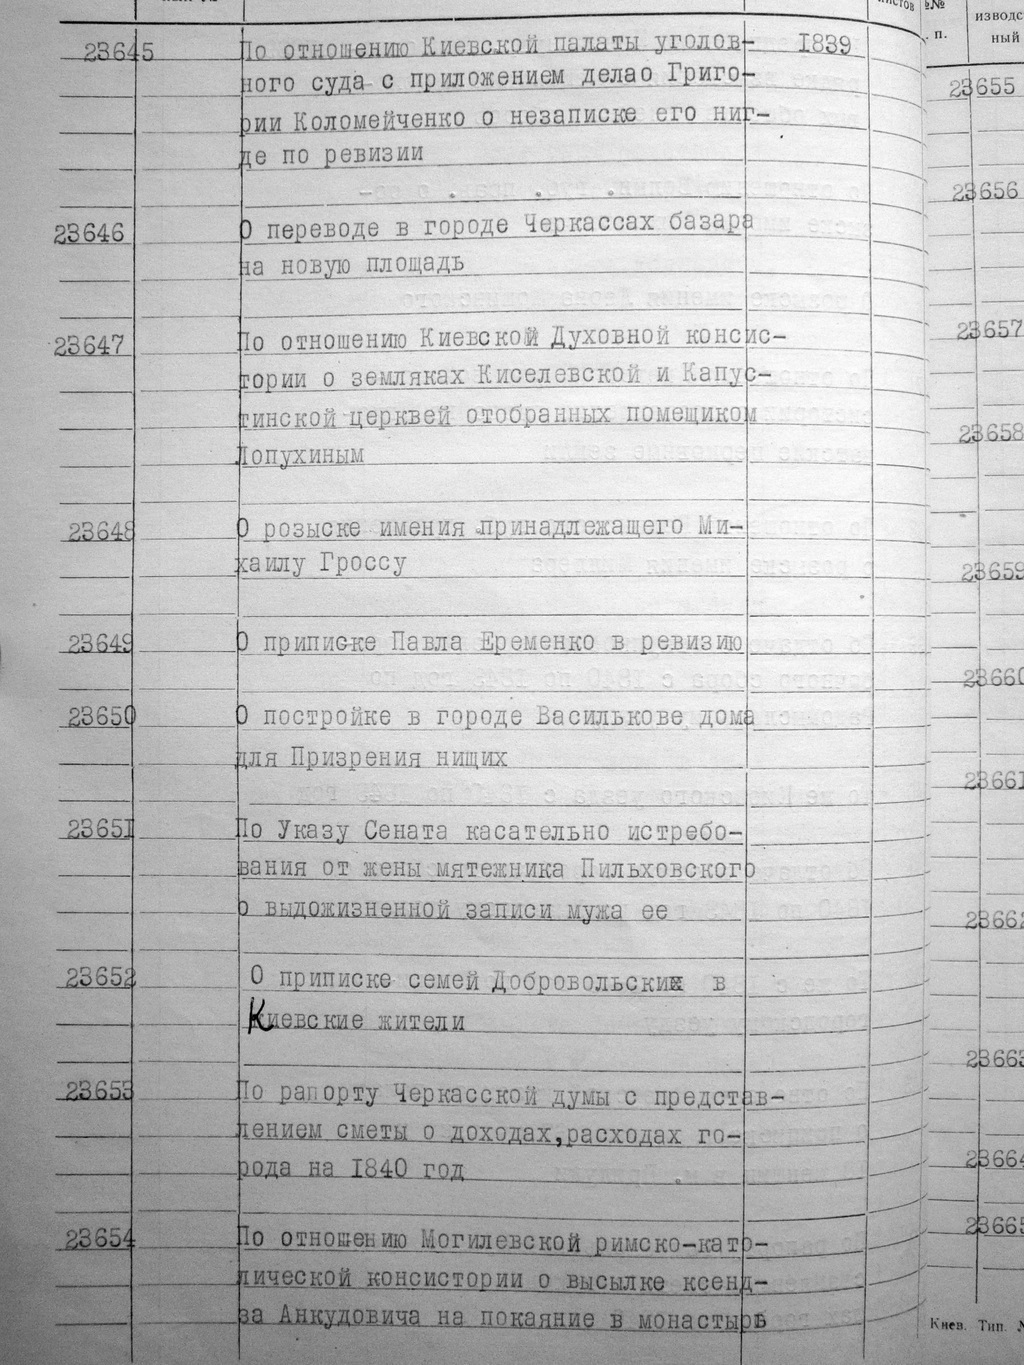 №№
п.
изводс
ный
23645 По отношению Киевской палаты уголов- 1839
ного суда с приложением делао Григо-
рии Коломейченко о незаписке его ниг-
де по ревизии
23646 О переводе в городе Черкассах базара
на новую площадь
23647 По отношению Киевской Духовной консис-
тории о земляках Киселевской и Капус-
тинской церквей отобранных помещиком
Лопухиным
23648 О розыске имения принадлежащего Ми-
хаилу Гроссу
23649 О приписке Павла Еременко в ревизию
23650 О постройке в городе Василькове дома
для Призрения нищих
23651 По Указу Сената касательно истребо-
вания от жены мятежника Пильховского
о выдожизненной записи мужа ее
23652 О приписке семей Добровольских в
Киевские жители
23653 По рапорту Черкасской думы с представ-
лением сметы о доходах,расходах го-
рода на 1840 год
23654 По отношению Могилевской римско-като-
лической консистории о высылке ксенд-
за Анкудовича на покаяние в монастырь
23655
23656
23657
23658
23659
23660
23661
23662
23663
23664
23665
Киев. Тип.